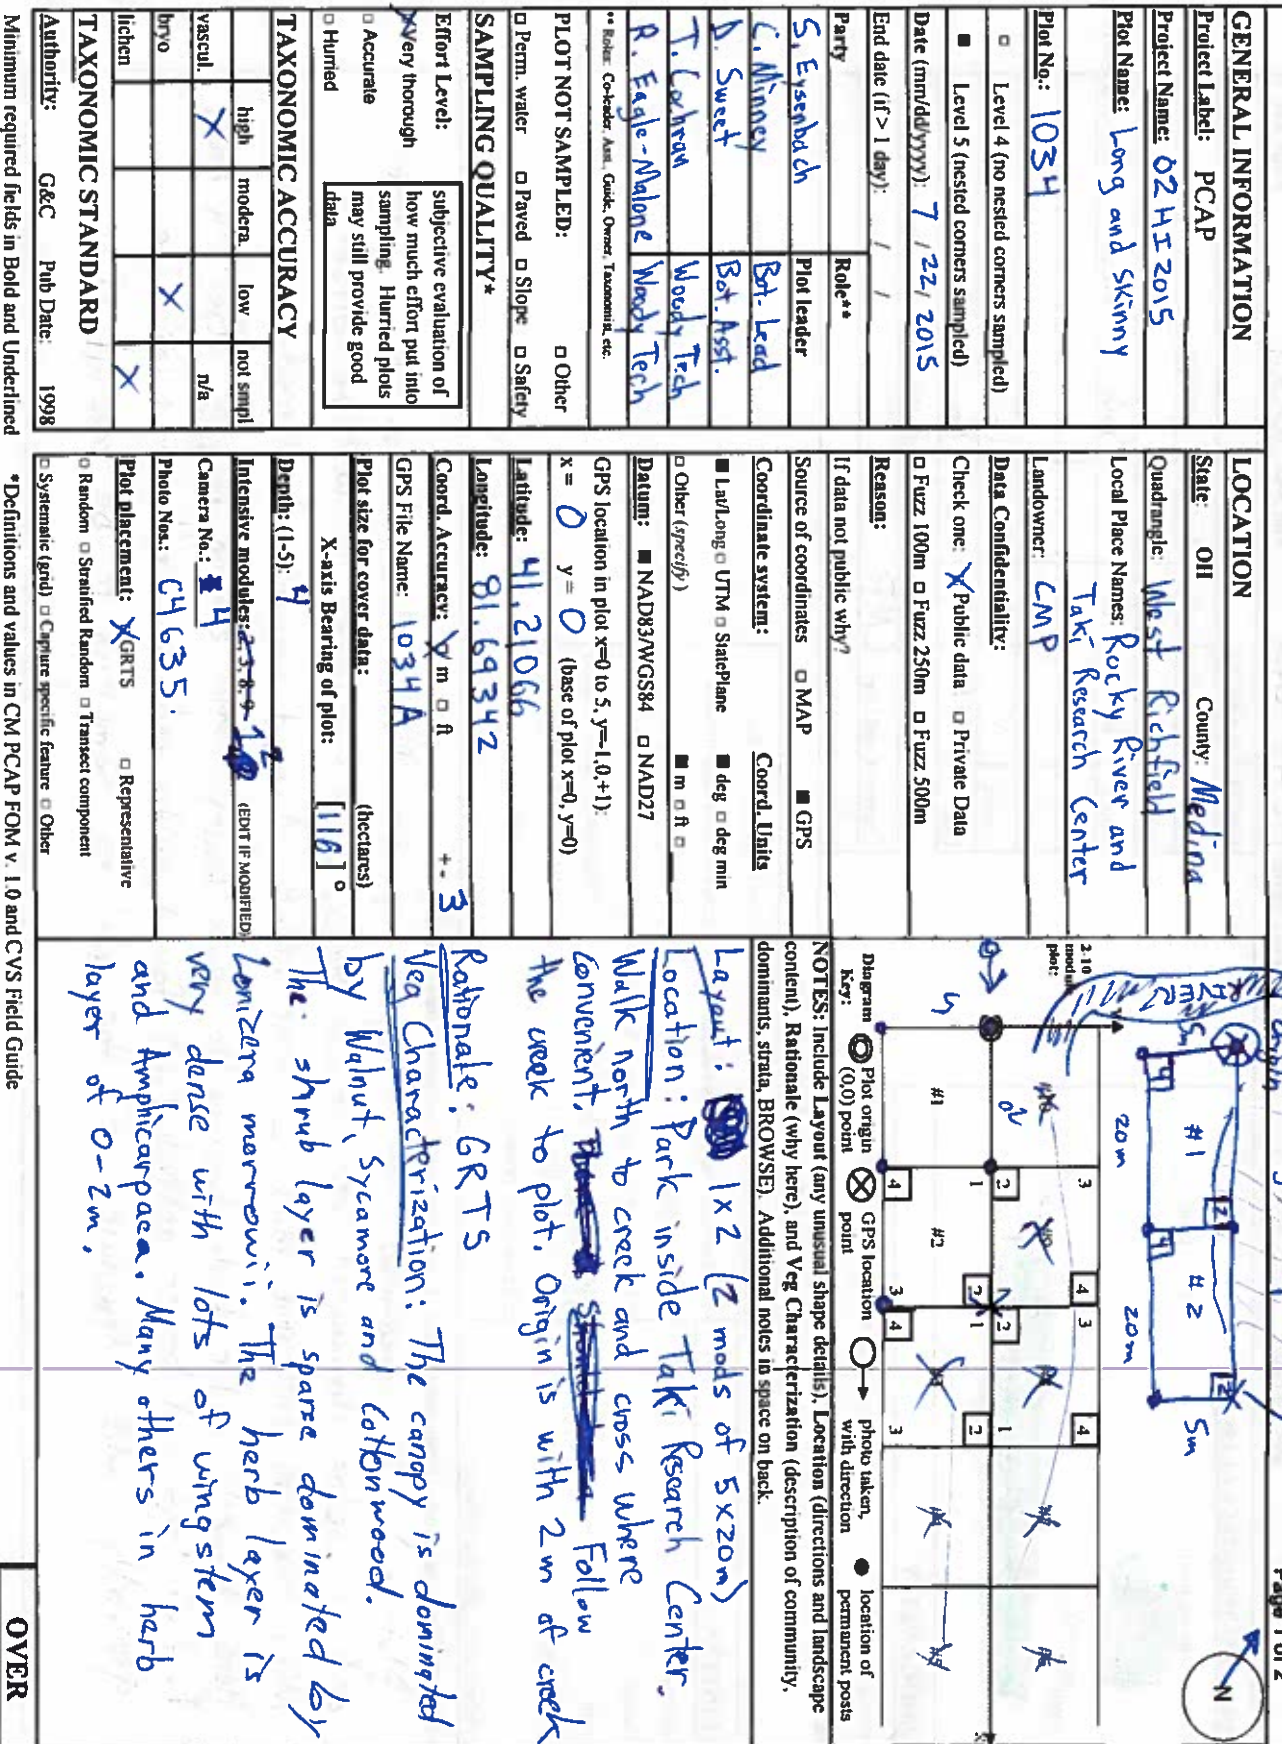 Page 1 of 2
GENERAL INFORMATION
Project Label: PCAP
Project Name: 02HI2015
Plot Name: Long and Skinny
Plot No.: 1034
□ Level 4 (no nested corners sampled)
■ Level 5 (nested corners sampled)
Date (mm/dd/yyyy): 7 / 22 / 2015
End date (if > 1 day): / /
Party Role**
S. Eysenbach Plot leader
C. Minney Bot. Lead
D. Sweet Bot. Asst.
T. Cochran Woody Tech
R. Eagle-Malone Woody Tech
** Roles: Co-leader, Asst., Guide, Owner, Taxonomist, etc.
PLOT NOT SAMPLED: □ Other
□ Perm. water □ Paved □ Slope □ Safety
SAMPLING QUALITY*
Effort Level:
X Very thorough
□ Accurate
□ Hurried
subjective evaluation of
how much effort put into
sampling. Hurried plots
may still provide good
data
TAXONOMIC ACCURACY
high modera. low not smpl
vascul. X n/a
bryo X
lichen X
TAXONOMIC STANDARD
Authority: G&C Pub Date: 1998
Minimum required fields in Bold and Underlined
LOCATION
State: OH County: Medina
Quadrangle: West Richfield
Local Place Names: Rocky River and
Taki Research Center
Landowner: CMP
Data Confidentiality:
Check one: X Public data □ Private Data
□ Fuzz 100m □ Fuzz 250m □ Fuzz 500m
Reason:
If data not public why?
Source of coordinates □ MAP ■ GPS
Coordinate system: Coord. Units
■ Lat/Long □ UTM □ StatePlane ■ deg □ deg min
□ Other (specify) ■ m □ ft □
Datum: ■ NAD83/WGS84 □ NAD27
GPS location in plot x=0 to 5, y=-1,0,+1):
x = 0 y = 0 (base of plot x=0, y=0)
Latitude: 41.21066
Longitude: 81.69342
Coord. Accuracy: X m □ ft +- 3
GPS File Name: 1034A
Plot size for cover data: (hectares)
X-axis Bearing of plot: [116]°
Depth: (1-5): 4
Intensive modules: 2, 3, 8, 9 1,2 (EDIT IF MODIFIED)
Camera No.: 4
Photo Nos.: C4635.
Plot placement: X GRTS □ Representative
□ Random □ Stratified Random □ Transect component
□ Systematic (grid) □ Capture specific feature □ Other
*Definitions and values in CM PCAP FOM v. 1.0 and CVS Field Guide
N
RIVER
5m
#1
#2
4
2
4
2
20m
20m
5m
2-10
modul
plot:
#1
#2
Diagram Key: Plot origin (0,0) point GPS location point photo taken, with direction location of permanent posts
NOTES: Include Layout (any unusual shape details), Location (directions and landscape
content), Rationale (why here), and Veg Characterization (description of community,
dominants, strata, BROWSE). Additional notes in space on back.
Layout: 1x2 (2 mods of 5x20m)
Location: Park inside Taki Research Center.
Walk north to creek and cross where
convenient. Follow
the creek to plot. Origin is with 2m of creek
Rationale: GRTS
Veg Characterization: The canopy is dominated
by Walnut, Sycamore and Cottonwood.
The shrub layer is sparse dominated by
Lonizera morrowii. The herb layer is
very dense with lots of wingstem
and Amphicarpaea. Many others in herb
layer of 0-2m.
OVER